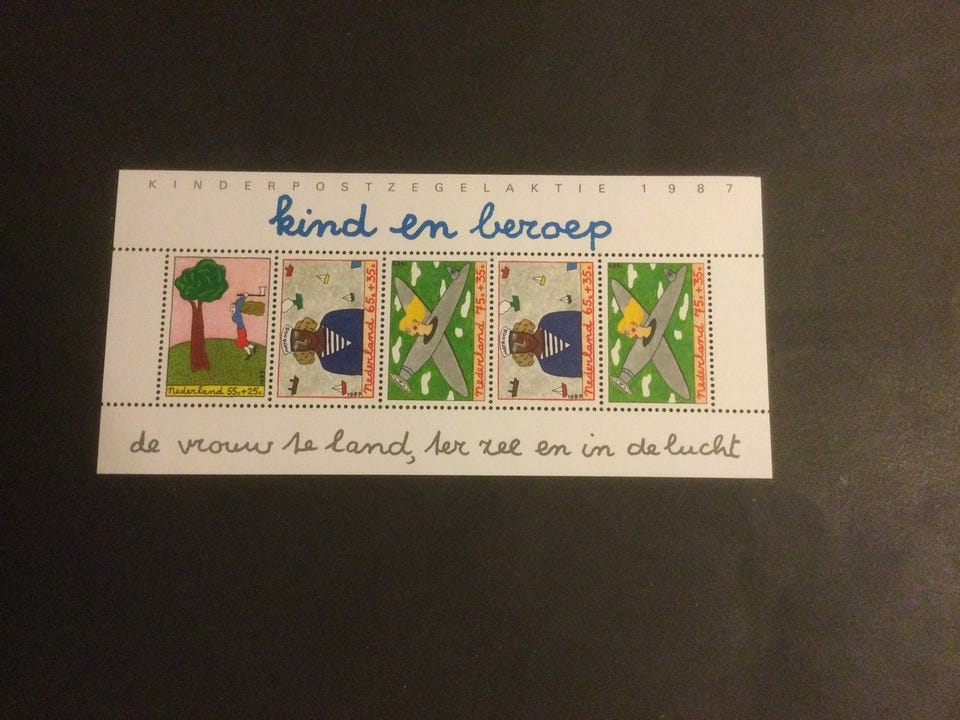 KINDERPOSTZEGELAKTIE 1987
kind en beroep
Nederland 55c+25c
Nederland 65c+35c
1987
Nederland 75c+35c
Nederland 65c+35c
1987
Nederland 75c+35c
de vrouw te land, ter zee en in de lucht